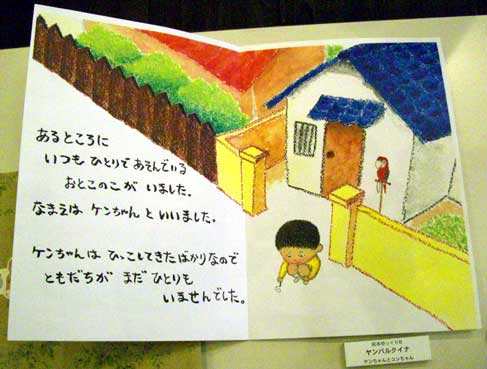 あるところに
いつも ひとりで あそんでいる
おとこのこが いました。
なまえは ケンちゃん と いいました。
ケンちゃんは ひっこしてきた ばかりなので
ともだちが まだ ひとりも
いませんでした。
ヤンバルクイナ
ケンちゃんとコンちゃん